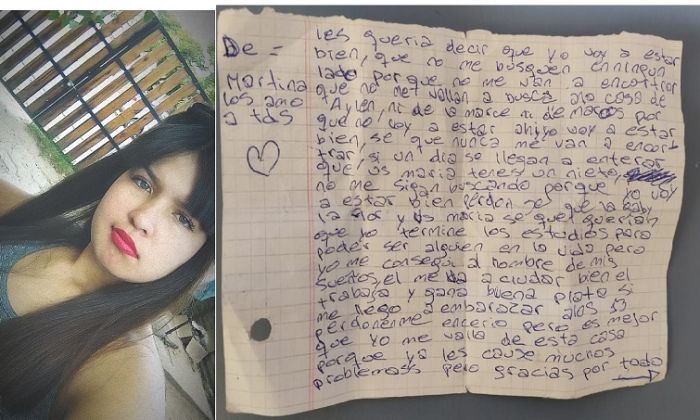 De =
Martina
los amo
a tds
les queria decir que yo voy a estar
bien, que no me busquen enningun
lado porque no me van a encontrar
que no me vallan a busca ala casa de
Aylen, ni de la marce ni de
que no voy a estar ahi yo voy a estar
bien, se que nunca me van a encon
trar, si un dia se llegan a enterar
que vs maria tenes un nieto,
no me sigan buscando porque yo voy
a estar bien perdon se que la
la flor y vs maria se que querian
que yo termine los estudios para
poder ser alguien en la vida pero
yo me consegui al hombre de mis
sueños, el me va a ciudar bien el
trabaja y gana buena plata si
me llego a embarazar alos 13
perdonenme encerio pero es mejor
que yo me valla de esta casa
porque ya les cause muchos
problemass pero gracias por todo